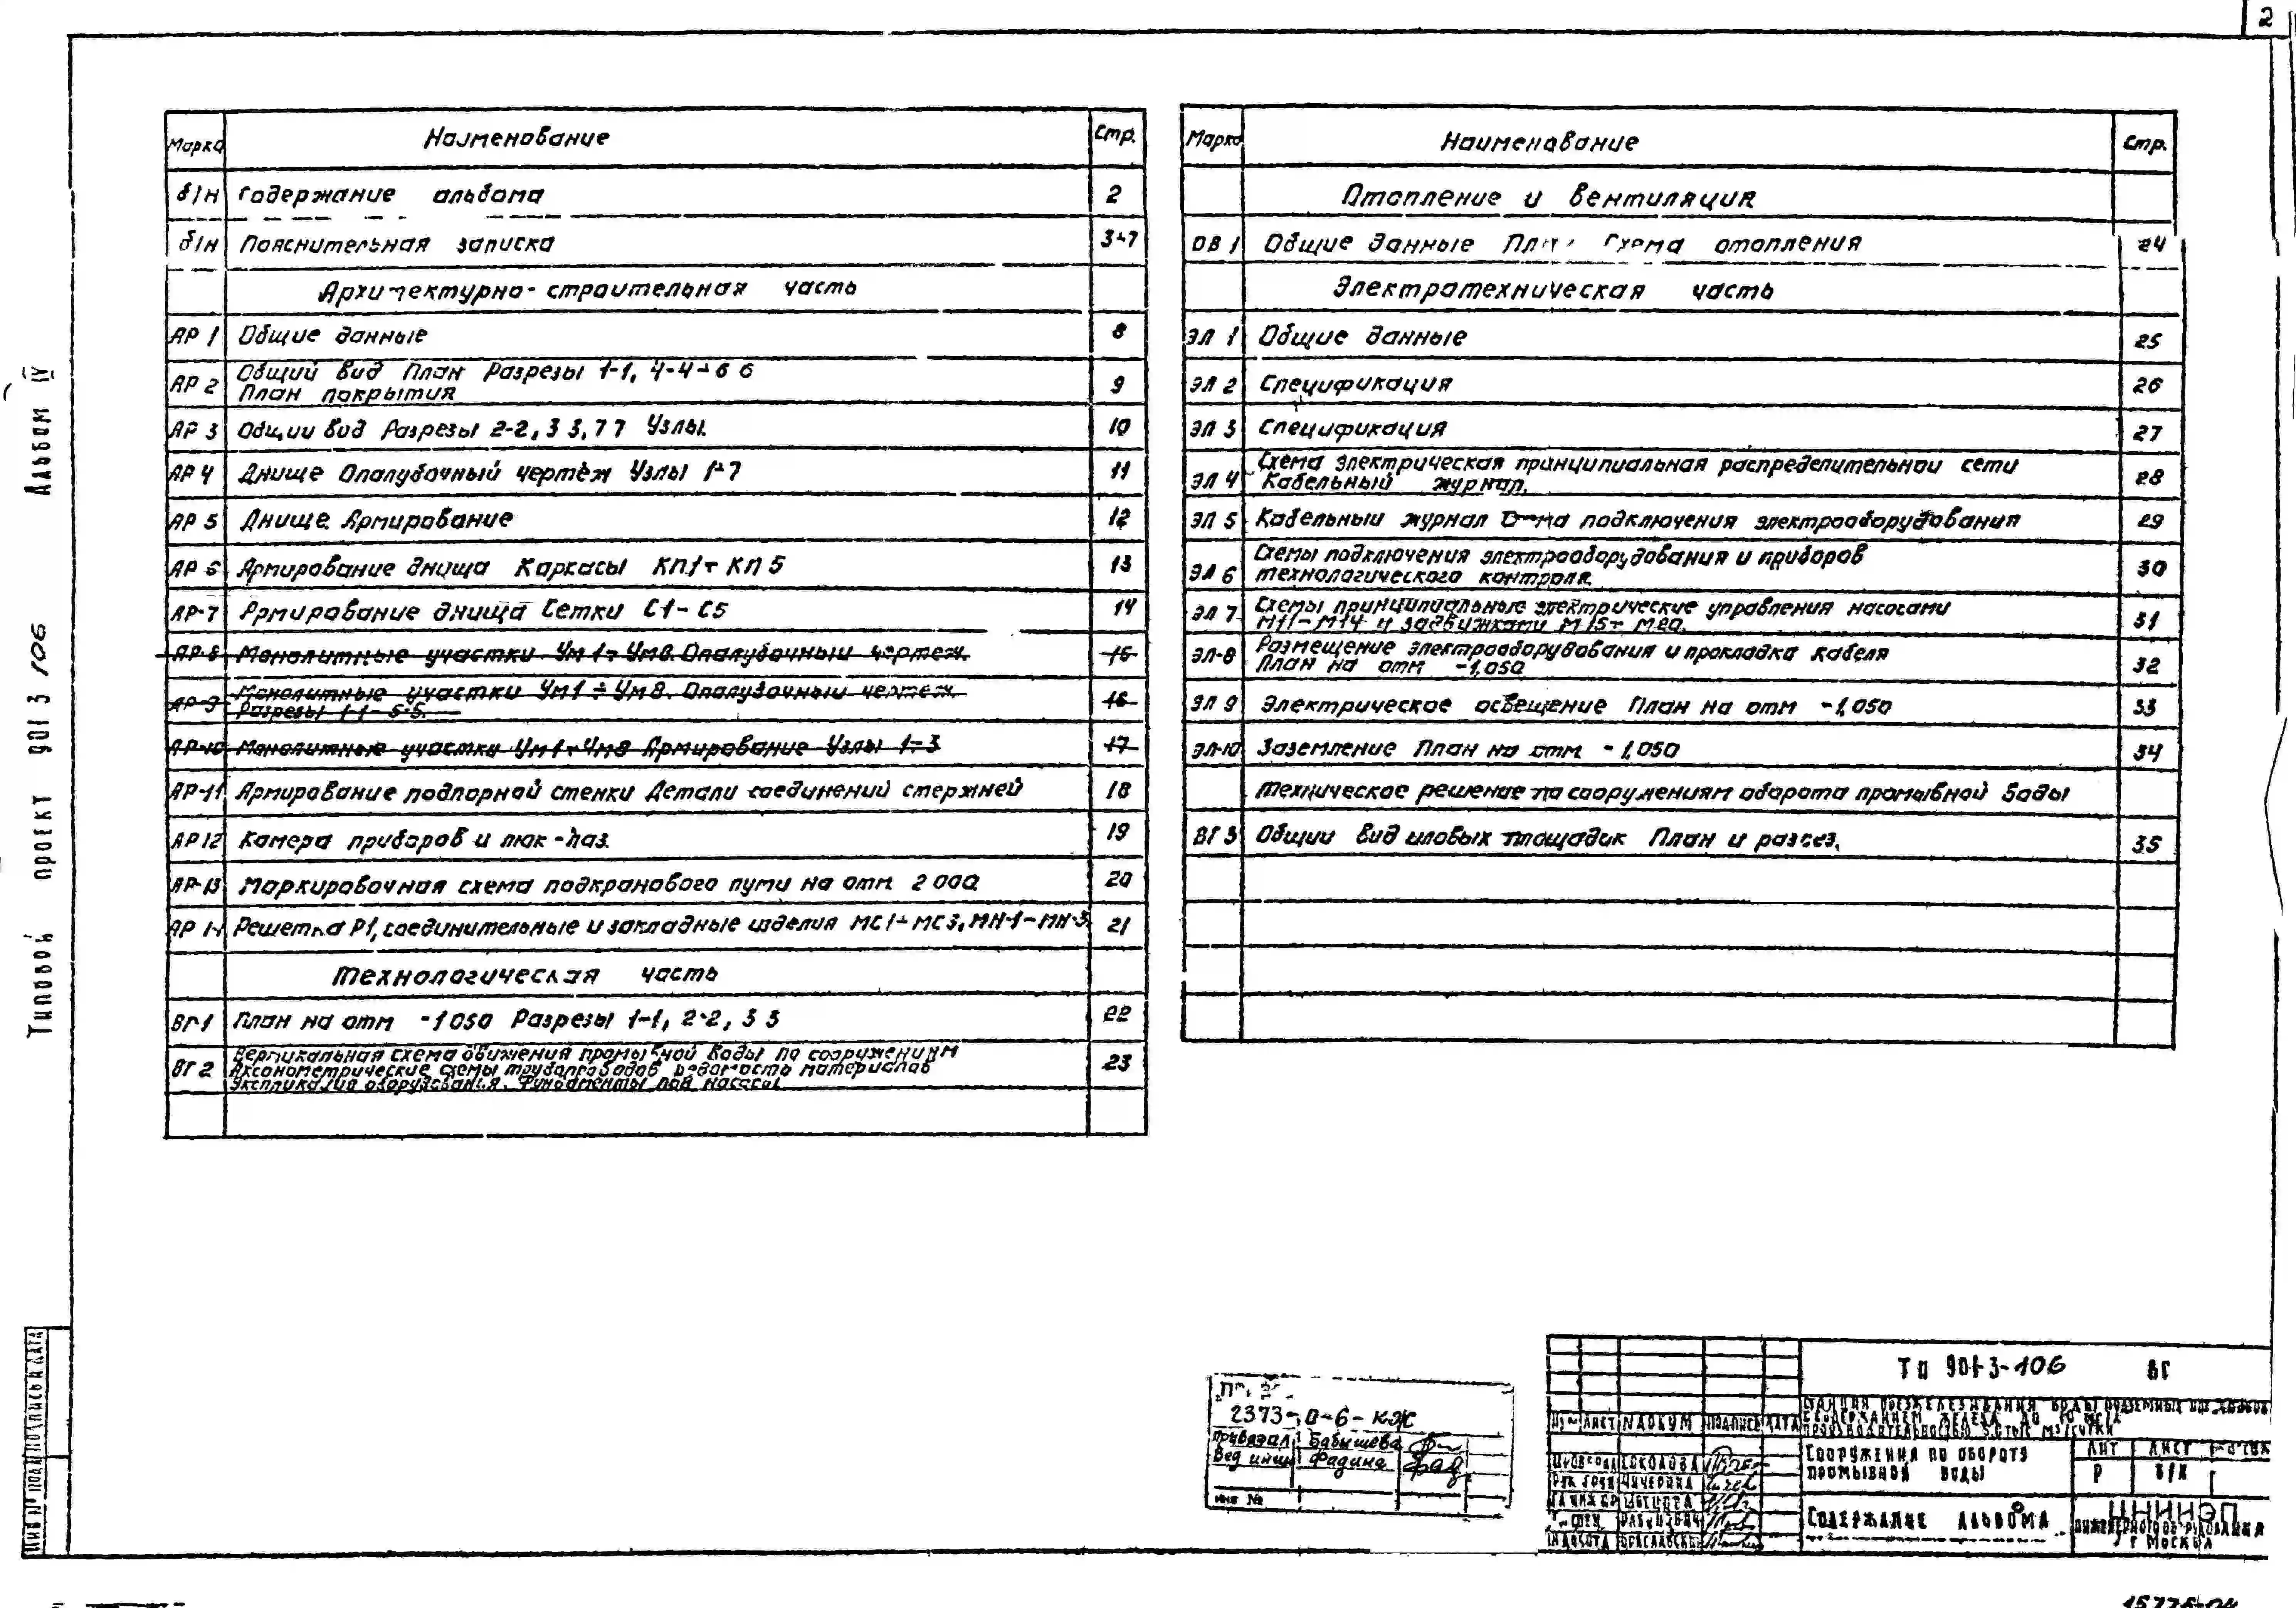 2
Марка Наименование Стр.
б/н Содержание альбома 2
б/н Пояснительная записка 3÷7
Архитектурно-строительная часть
АР 1 Общие данные 8
АР 2 Общий вид План Разрезы 1-1, 4-4÷6 6
План покрытия 9
АР 3 Общий вид Разрезы 2-2, 3 3, 7 7 Узлы. 10
АР 4 Днище Опалубочный чертёж Узлы 1÷7 11
АР 5 Днище. Армирование 12
АР 6 Армирование днища Каркасы КП1÷КП 5 13
АР-7 Армирование днища Сетки С1-С5 14
АР-8 Монолитные участки Ум 1÷Ум8. Опалубочный чертеж. 15
АР-9 Монолитные участки Ум1÷Ум8. Опалубочный чертеж.
Разрезы 1-1-5-5. 16
АР-10 Монолитные участки Ум1÷Ум8 Армирование Узлы 1÷3 17
АР-11 Армирование подпорной стенки Детали соединений стержней 18
АР 12 Камера приборов и люк-лаз. 19
АР-13 Маркировочная схема подкранового пути на отм. 2 000 20
АР 14 Решетка Р1, соединительные и закладные изделия МС1÷МС3, МН-1-МН-3 21
Технологическая часть
ВГ-1 План на отм -1 050 Разрезы 1-1, 2-2, 3 3 22
ВГ 2 Вертикальная схема движения промывной воды по сооружениям
Аксонометрические схемы трубопроводов Ведомость материалов
Экспликация оборудования. Фундаменты под насосы 23
Марка Наименование Стр.
Отопление и вентиляция
ОВ 1 Общие данные План Схема отопления 24
Электротехническая часть
ЭЛ 1 Общие данные 25
ЭЛ 2 Спецификация 26
ЭЛ 3 Спецификация 27
ЭЛ 4 Схема электрическая принципиальная распределительной сети
Кабельный журнал. 28
ЭЛ 5 Кабельный журнал Схема подключения электрооборудования 29
ЭЛ 6 Схемы подключения электрооборудования и приборов
технологического контроля. 30
ЭЛ 7 Схемы принципиальные электрические управления насосами
М11-М14 и задвижками М15÷М20. 31
ЭЛ-8 Размещение электрооборудования и прокладка кабеля
План на отм -1,050 32
ЭЛ 9 Электрическое освещение План на отм -1,050 33
ЭЛ-10 Заземление План на отм. -1,050 34
Техническое решение по сооружениям оборота промывной воды
ВГ 3 Общий вид иловых площадок План и разрез. 35
Типовой проект 901 3 106 Альбом IV
Инв № подл Подпись и дата
2373-0-6-КЖ
Привязал Бабышева
Вед инж Фадина
инв №
ТП 901-3-106 ВГ
Станция обезжелезивания воды подземных источников
с содержанием железа до 10 мг/л
производительностью 5,0 тыс м3/сутки
Лист № докум Подпись Дата
Сооружения по обороту
промывной воды
Лит Лист Листов
Р б/н 1
Соколова
Чичерина
Содержание альбома
ЦНИИЭП
инженерного оборудования
г Москва
15776-04